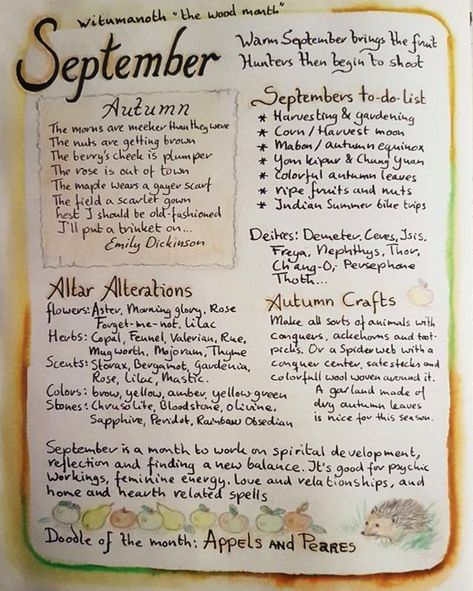 Witumanoth "the wood month"
September
Warm September brings the fruit
Hunters then begin to shoot
Autumn
The morns are meeker than they were
The nuts are getting brown
The berry's cheek is plumper
The rose is out of town
The maple wears a gayer scarf
The field a scarlet gown
hest I should be old-fashioned
I'll put a trinket on...
Emily Dickinson
Septembers to-do-list
* Harvesting & gardening
* Corn / Harvest moon
* Mabon / autumn equinox
* Yom kipur & Chung Yuan
* colorful autumn leaves
* ripe fruits and nuts
* Indian Summer bike trips
Deities: Demeter, Ceres, Isis,
Freya, Nephthys, Thor,
Ch'ang-O, Persephone
Thoth...
Altar Alterations
flowers: Aster, Morning glory, Rose
Forget-me-not, Lilac
Herbs: Copal, Fennel, Valerian, Rue,
Mugworth, Mojoram, Thyme
Scents: Storax, Bergamot, Gardenia,
Rose, Lilac, Mastic.
Colours: brow, yellow, amber, yellow-green
Stones: Chrusolite, Bloodstone, olivine,
Sapphire, Peridot, Rainbow Obsedian
Autumn Crafts
Make all sorts of animals with
conquers, ackehorns and toot-
picks. Or a Spiderweb with a
conquer center, sate sticks and
colorfull wool woven around it.
A garland made of
dry autumn leaves
is nice for this season.
September is a month to work on spirital development,
reflection and finding a new balance. It's good for psychic
workings, feminine energy. love and relationships, and
home and hearth related spells
Doodle of the month: Appels and Perres